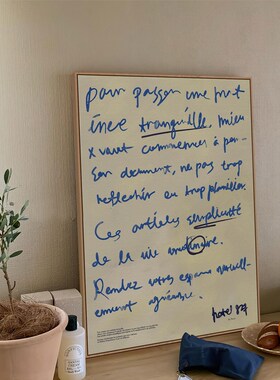 pour passer une mat
inée tranquille, mieu
x vaut commencer à pen-
ser doucement, ne pas trop
reflechir ou trop planifier.
Ces articles simplicité
de la vie
Rendez votres espaces naturell-
ement agréable.
hotel 827